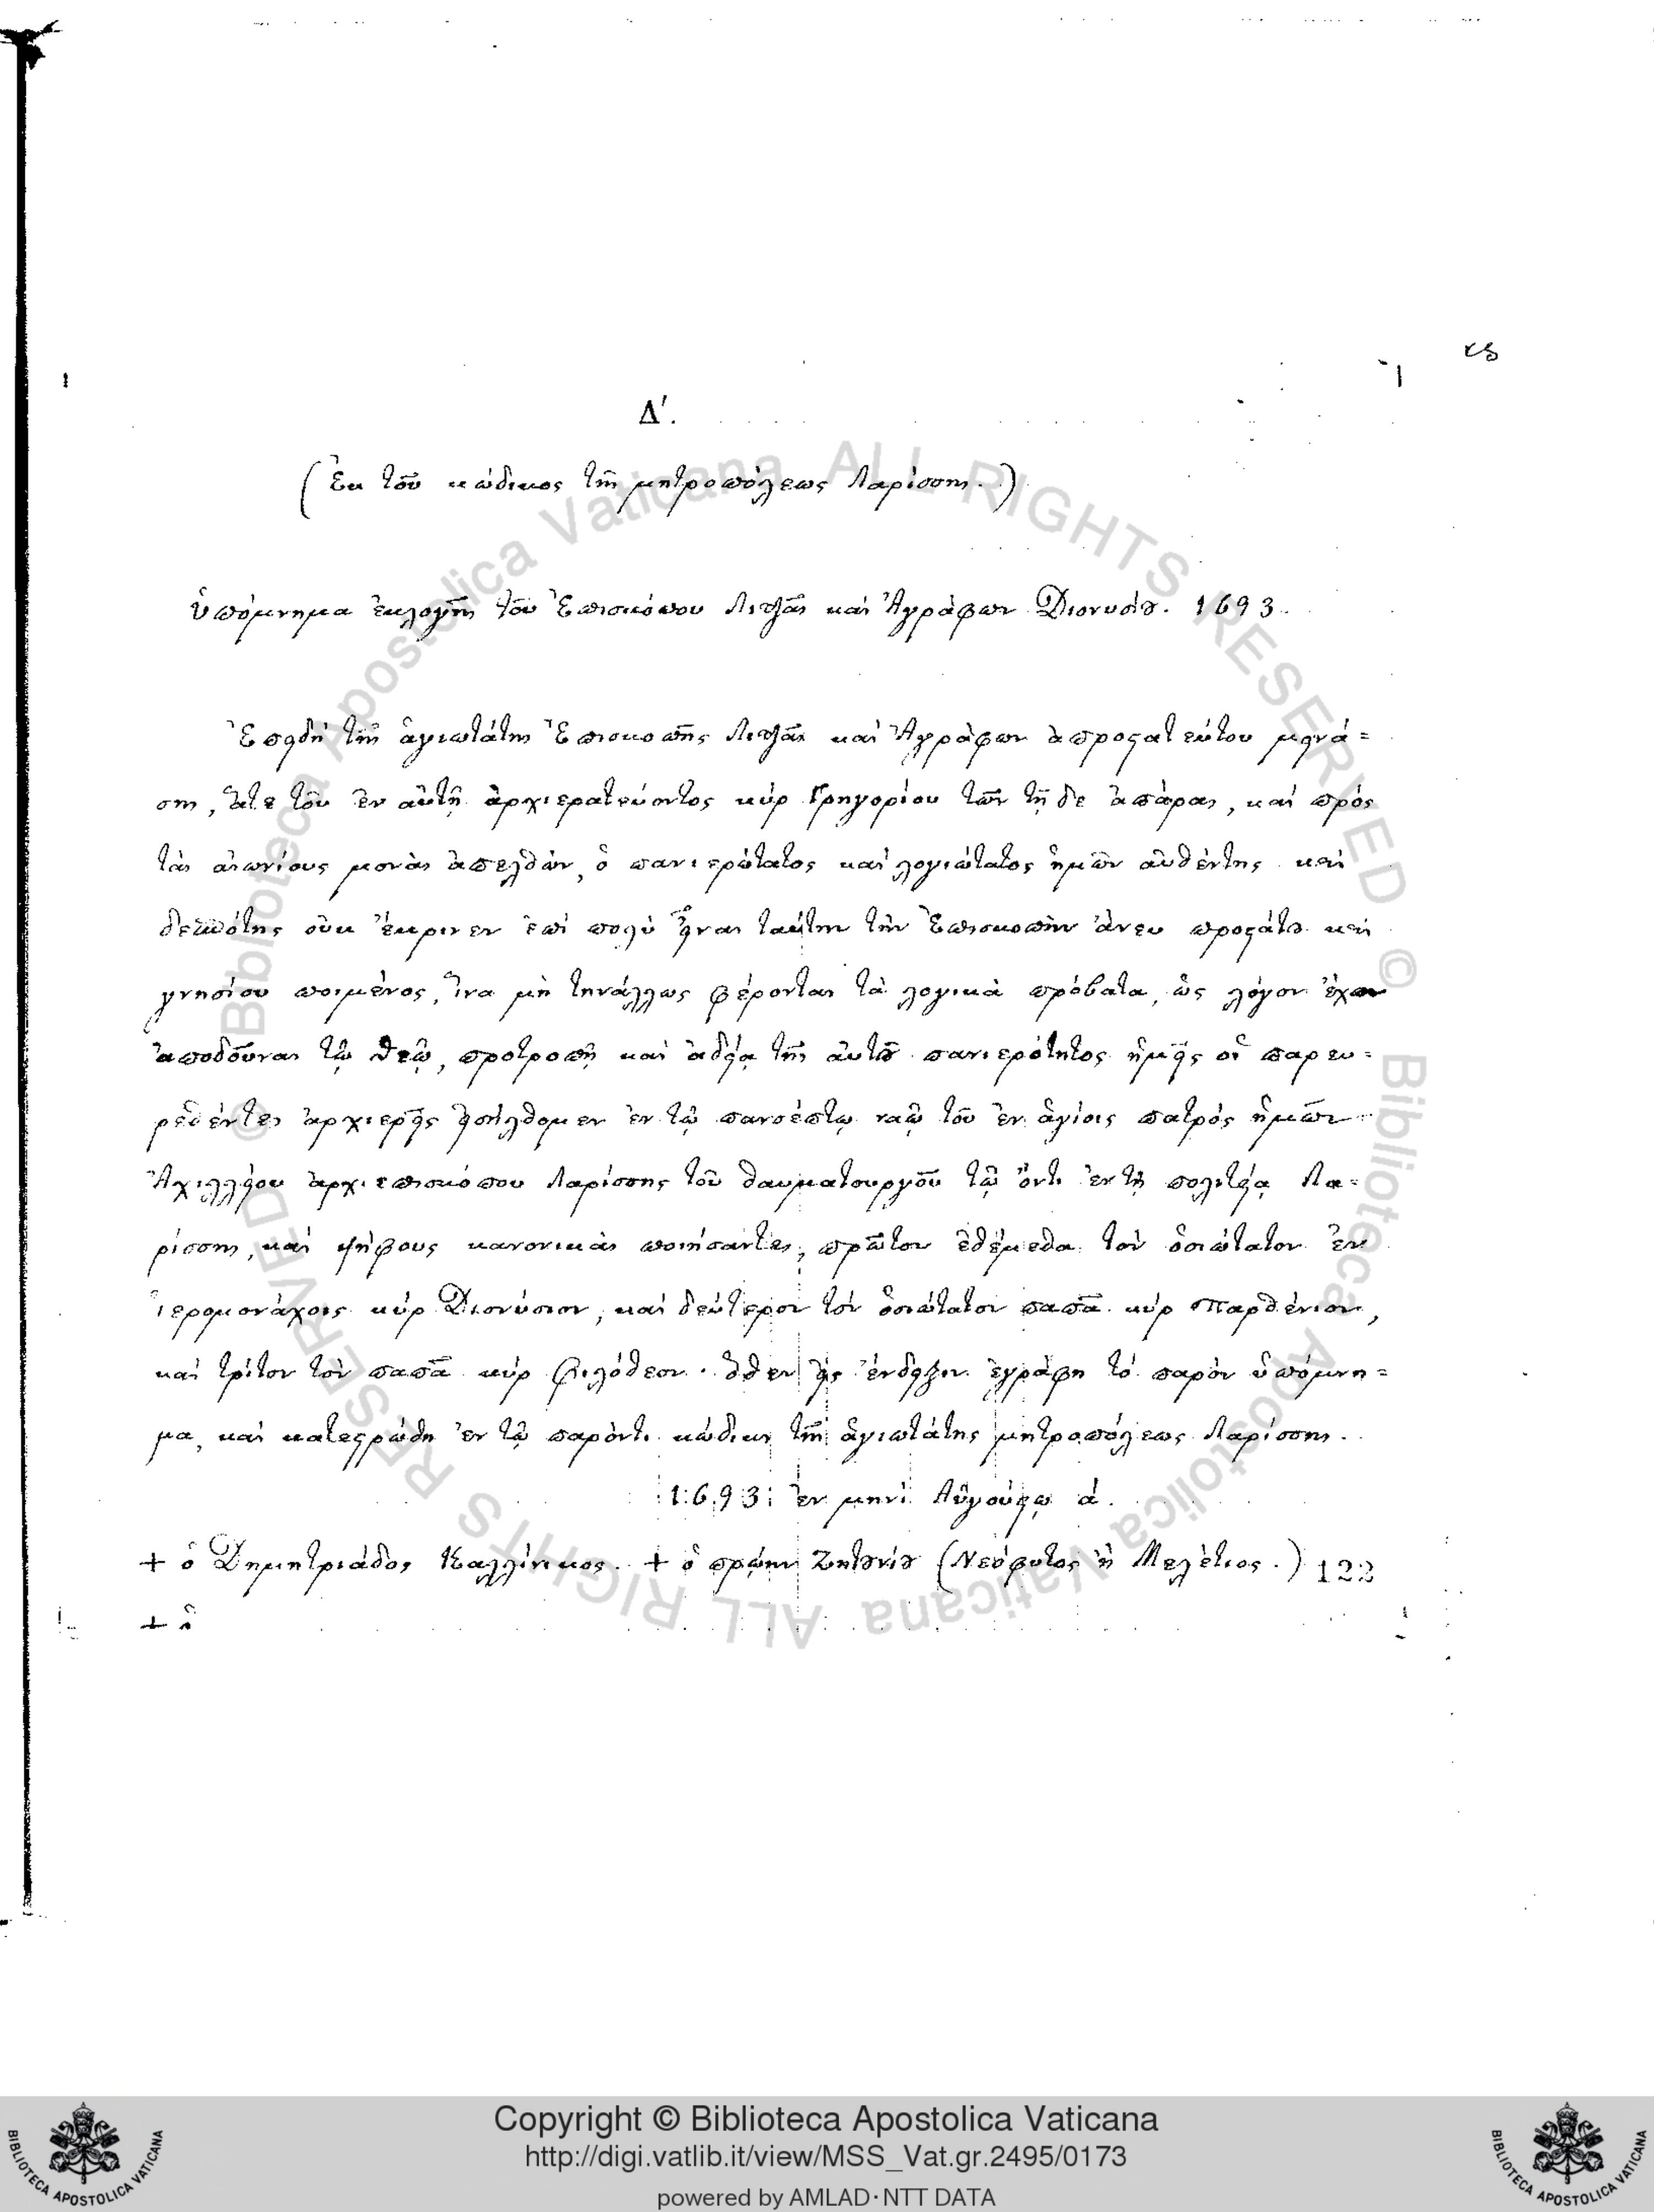 κς
Δ'.
(Ἐκ τοῦ κώδικος τῆς μητροπόλεως Λαρίσσης.)
ὑπόμνημα ἐκλογῆς τοῦ Ἐπισκόπου Λιτζᾶς καὶ Ἀγράφων Διονυσίȣ. 1693.
Ἐπειδὴ τῆς ἁγιωτάτης Ἐπισκοπῆς Λιτζᾶς καὶ Ἀγράφων ἀπροστατεύτου μεινά=
σης, ἅτε τοῦ ἐν αὐτῇ ἀρχιερατεύοντος κὺρ Γρηγορίου τῶν τῇδε ἀπάρας, καὶ πρὸς
τὰς αἰωνίους μονὰς ἀπελθὼν, ὁ πανιερώτατος καὶ λογιώτατος ἡμῶν αὐθέντης καὶ
δεσπότης οὐκ ἔκρινεν ἐπὶ πολὺ εἶναι ταύτην τὴν Ἐπισκοπὴν ἄνευ προστάτȣ καὶ
γνησίου ποιμένος, ἵνα μὴ τηνάλλως φέρονται τὰ λογικὰ πρόβατα, ὡς λόγον ἔχων
ἀποδοῦναι τῷ Θεῷ, προτροπῇ καὶ ἀδείᾳ τῆς αὐτȣ͂ πανιερότητος ἡμεῖς οἱ παρευ=
ρεθέντες ἀρχιερεῖς εἰσήλθομεν ἐν τῷ πανσέπτῳ ναῷ τοῦ ἐν ἁγίοις πατρὸς ἡμῶν
Ἀχιλλείου ἀρχιεπισκόπου Λαρίσσης τοῦ θαυματουργοῦ τῷ ὄντι ἐν τῇ πολιτείᾳ Λα=
ρίσσης, καὶ ψήφους κανονικὰς ποιήσαντες, πρῶτον ἐθέμεθα τὸν ὁσιώτατον ἐν
ἱερομονάχοις κὺρ Διονύσιον, καὶ δεύτερον τὸν ὁσιώτατον παπᾶ κὺρ Παρθένιον,
καὶ τρίτον τὸν παπᾶ κὺρ Φιλόθεον. ὅθεν εἰς ἔνδειξιν ἐγράφη τὸ παρὸν ὑπόμνη=
μα, καὶ κατεστρώθη ἐν τῷ παρόντι κώδικι τῆς ἁγιωτάτης μητροπόλεως Λαρίσσης.
1693: ἐν μηνὶ Αὐγούστῳ ά.
+ ὁ Δημητριάδος Καλλίνικος. + ὁ πρώην Ζητȣνίȣ (Νεόφυτος ἢ Μελέτιος.) 122
+ ὁ
Copyright © Biblioteca Apostolica Vaticana
http://digi.vatlib.it/view/MSS_Vat.gr.2495/0173
powered by AMLAD·NTT DATA